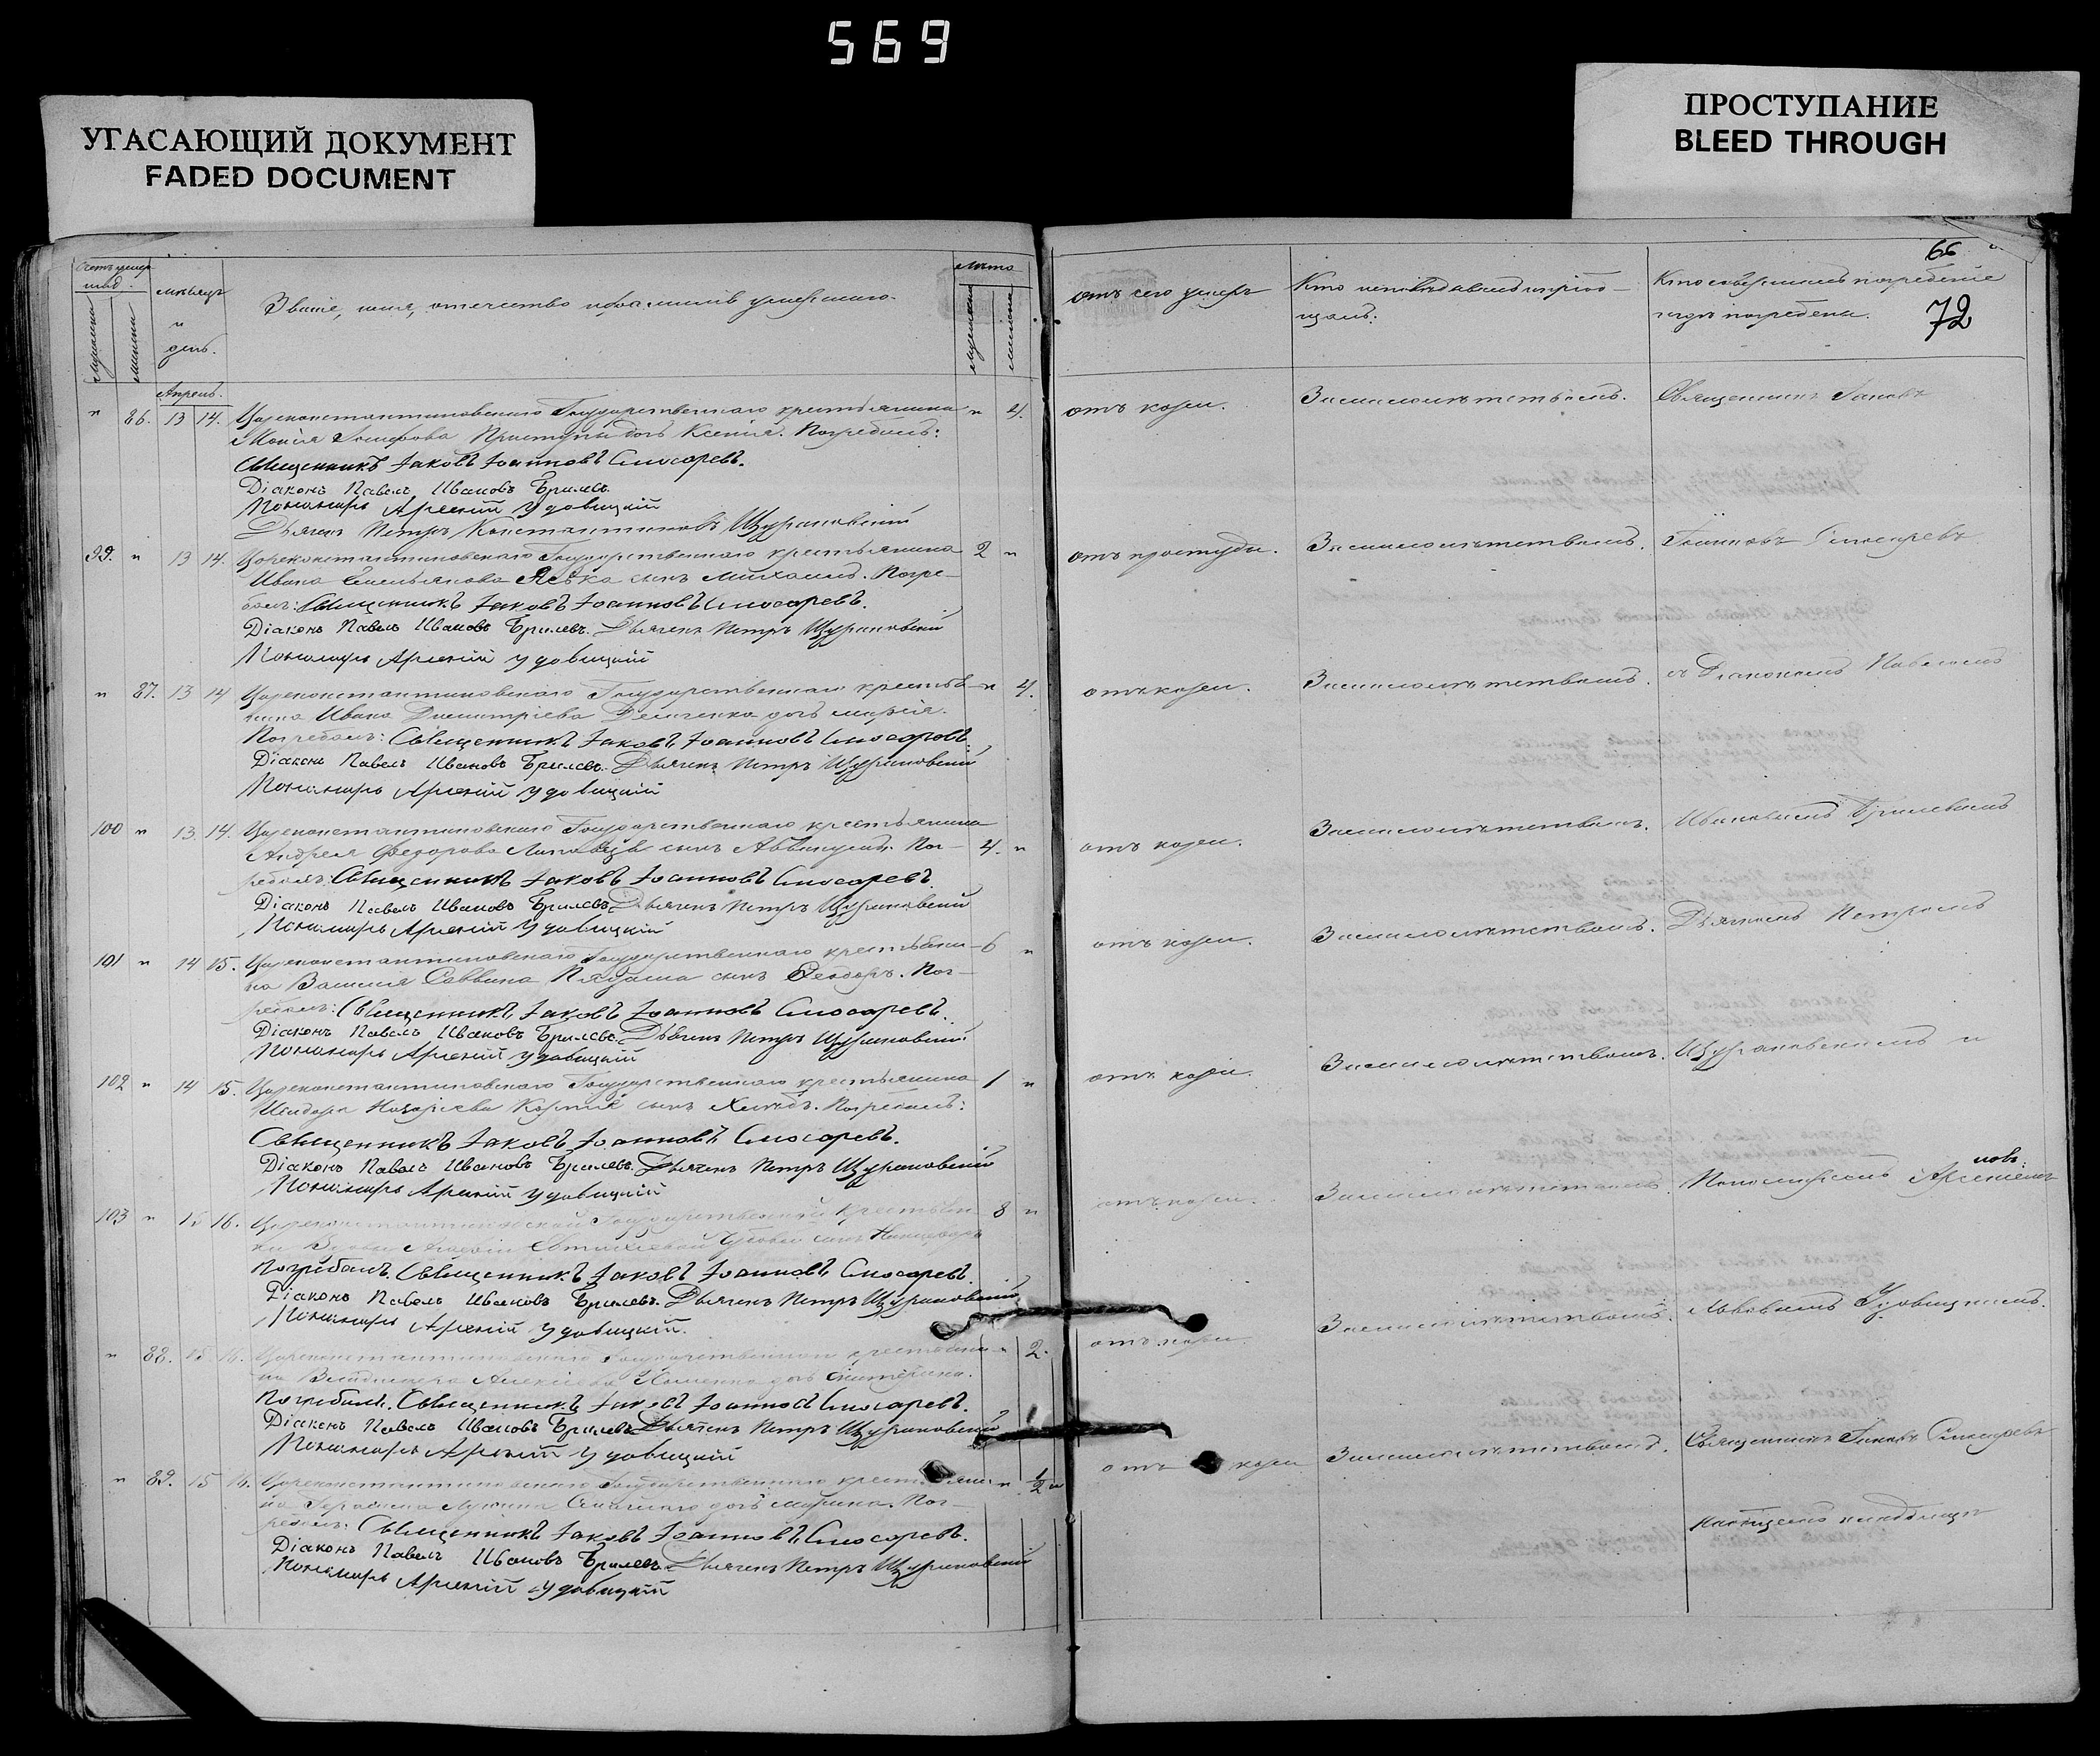 569
УГАСАЮЩИЙ ДОКУМЕНТ
FADED DOCUMENT
ПРОСТУПАНИЕ
BLEED THROUGH
66
72
Счетъ умер
шид.
Мужеска
Женска
мѣсяцъ
и
день.
Званіе, имя, отчество и фамилія умершаго.
Лѣта
Мужеска
Женска
отъ чего умеръ
Кто исповѣдывалъ и пріоб-
щалъ.
Кто совершалъ погребеніе
и гдѣ погребены.
Апрель.
" 86. 13 14. Цареконстантиновскаго Государственнаго крестьянина " 4.
дочь Ксенія. Погребалъ:
Священникъ Іаковъ Іоанновъ Слюсаревъ.
Діаконъ Павелъ Ивановъ Брилевъ.
Пономарь Арсеній Удовицкій
Дьячекъ Петръ Константиновъ Щурановскій
отъ кори. За малолѣтствомъ. Священникъ Іаковъ
99. " 13 14. Цареконстантиновскаго Государственнаго крестьянина 2 "
Ивана Емельянова сынъ Михаилъ. Погре-
балъ: Священникъ Іаковъ Іоанновъ Слюсаревъ.
Діаконъ Павелъ Ивановъ Брилевъ. Дьячекъ Петръ Щурановскій
Пономарь Арсеній Удовицкій
отъ простуды. За малолѣтствомъ. Іоанновъ Слюсаревъ
" 87. 13 14 Цареконстантиновскаго Государственнаго крестья- " 4.
нина Ивана Димитріева дочь Марія.
Погребалъ: Священникъ Іаковъ Іоанновъ Слюсаревъ.
Діаконъ Павелъ Ивановъ Брилевъ. Дьячекъ Петръ Щурановскій
Пономарь Арсеній Удовицкій
отъ кори. За малолѣтствомъ. съ Діакономъ Павломъ
100 " 13. 14. Цареконстантиновскаго Государственнаго крестьянина
Андрея Федорова сынъ Пог- 4. "
ребалъ: Священникъ Іаковъ Іоанновъ Слюсаревъ.
Діаконъ Павелъ Ивановъ Брилевъ Дьячекъ Петръ Щурановскій
Пономарь Арсеній Удовицкій
отъ кори. За малолѣтствомъ. Ивановымъ Брилевымъ
101 " 14 15. Цареконстантиновскаго Государственнаго крестьяни- 6 "
на Василія Саввина сынъ Феодоръ. Пог-
ребалъ: Священникъ Іаковъ Іоанновъ Слюсаревъ.
Діаконъ Павелъ Ивановъ Брилевъ. Дьячекъ Петръ Щурановскій
Пономарь Арсеній Удовицкій
отъ кори. За малолѣтствомъ. Дьячкомъ Петромъ
102 " 14 15. Цареконстантиновскаго Государственнаго крестьянина 1 "
сынъ Погребалъ:
Священникъ Іаковъ Іоанновъ Слюсаревъ.
Діаконъ Павелъ Ивановъ Брилевъ. Дьячекъ Петръ Щурановскій
Пономарь Арсеній Удовицкій
отъ кори. За малолѣтствомъ. Щурановскимъ и
103 " 15 16. Цареконстантиновской Государственной крестьян- 8 "
ки Вдовы сынъ
Погребалъ. Священникъ Іаковъ Іоанновъ Слюсаревъ.
Діаконъ Павелъ Ивановъ Брилевъ. Дьячекъ Петръ Щурановскій
Пономарь Арсеній Удовицкій.
отъ кори. За малолѣтствомъ. Пономаремъ Арсеніемъ
" 88. 15 16. Цареконстантиновскаго Государственнаго крестьяни- " 2.
на Алексіева дочь
Погребалъ. Священникъ Іаковъ Іоанновъ Слюсаревъ.
Діаконъ Павелъ Ивановъ Брилевъ Дьячекъ Петръ Щурановскій
Пономарь Арсеній Удовицкій
отъ кори. За малолѣтствомъ. Удовицкимъ.
" 89. 15 16. Цареконстантиновскаго Государственнаго крестьяни- " 1/2
на дочь Марина. Пог-
ребалъ: Священникъ Іаковъ Іоанновъ Слюсаревъ.
Діаконъ Павелъ Ивановъ Брилевъ Дьячекъ Петръ Щурановскій
Пономарь Арсеній Удовицкій
отъ кори За малолѣтствомъ. Священникъ Іаковъ Слюсаревъ